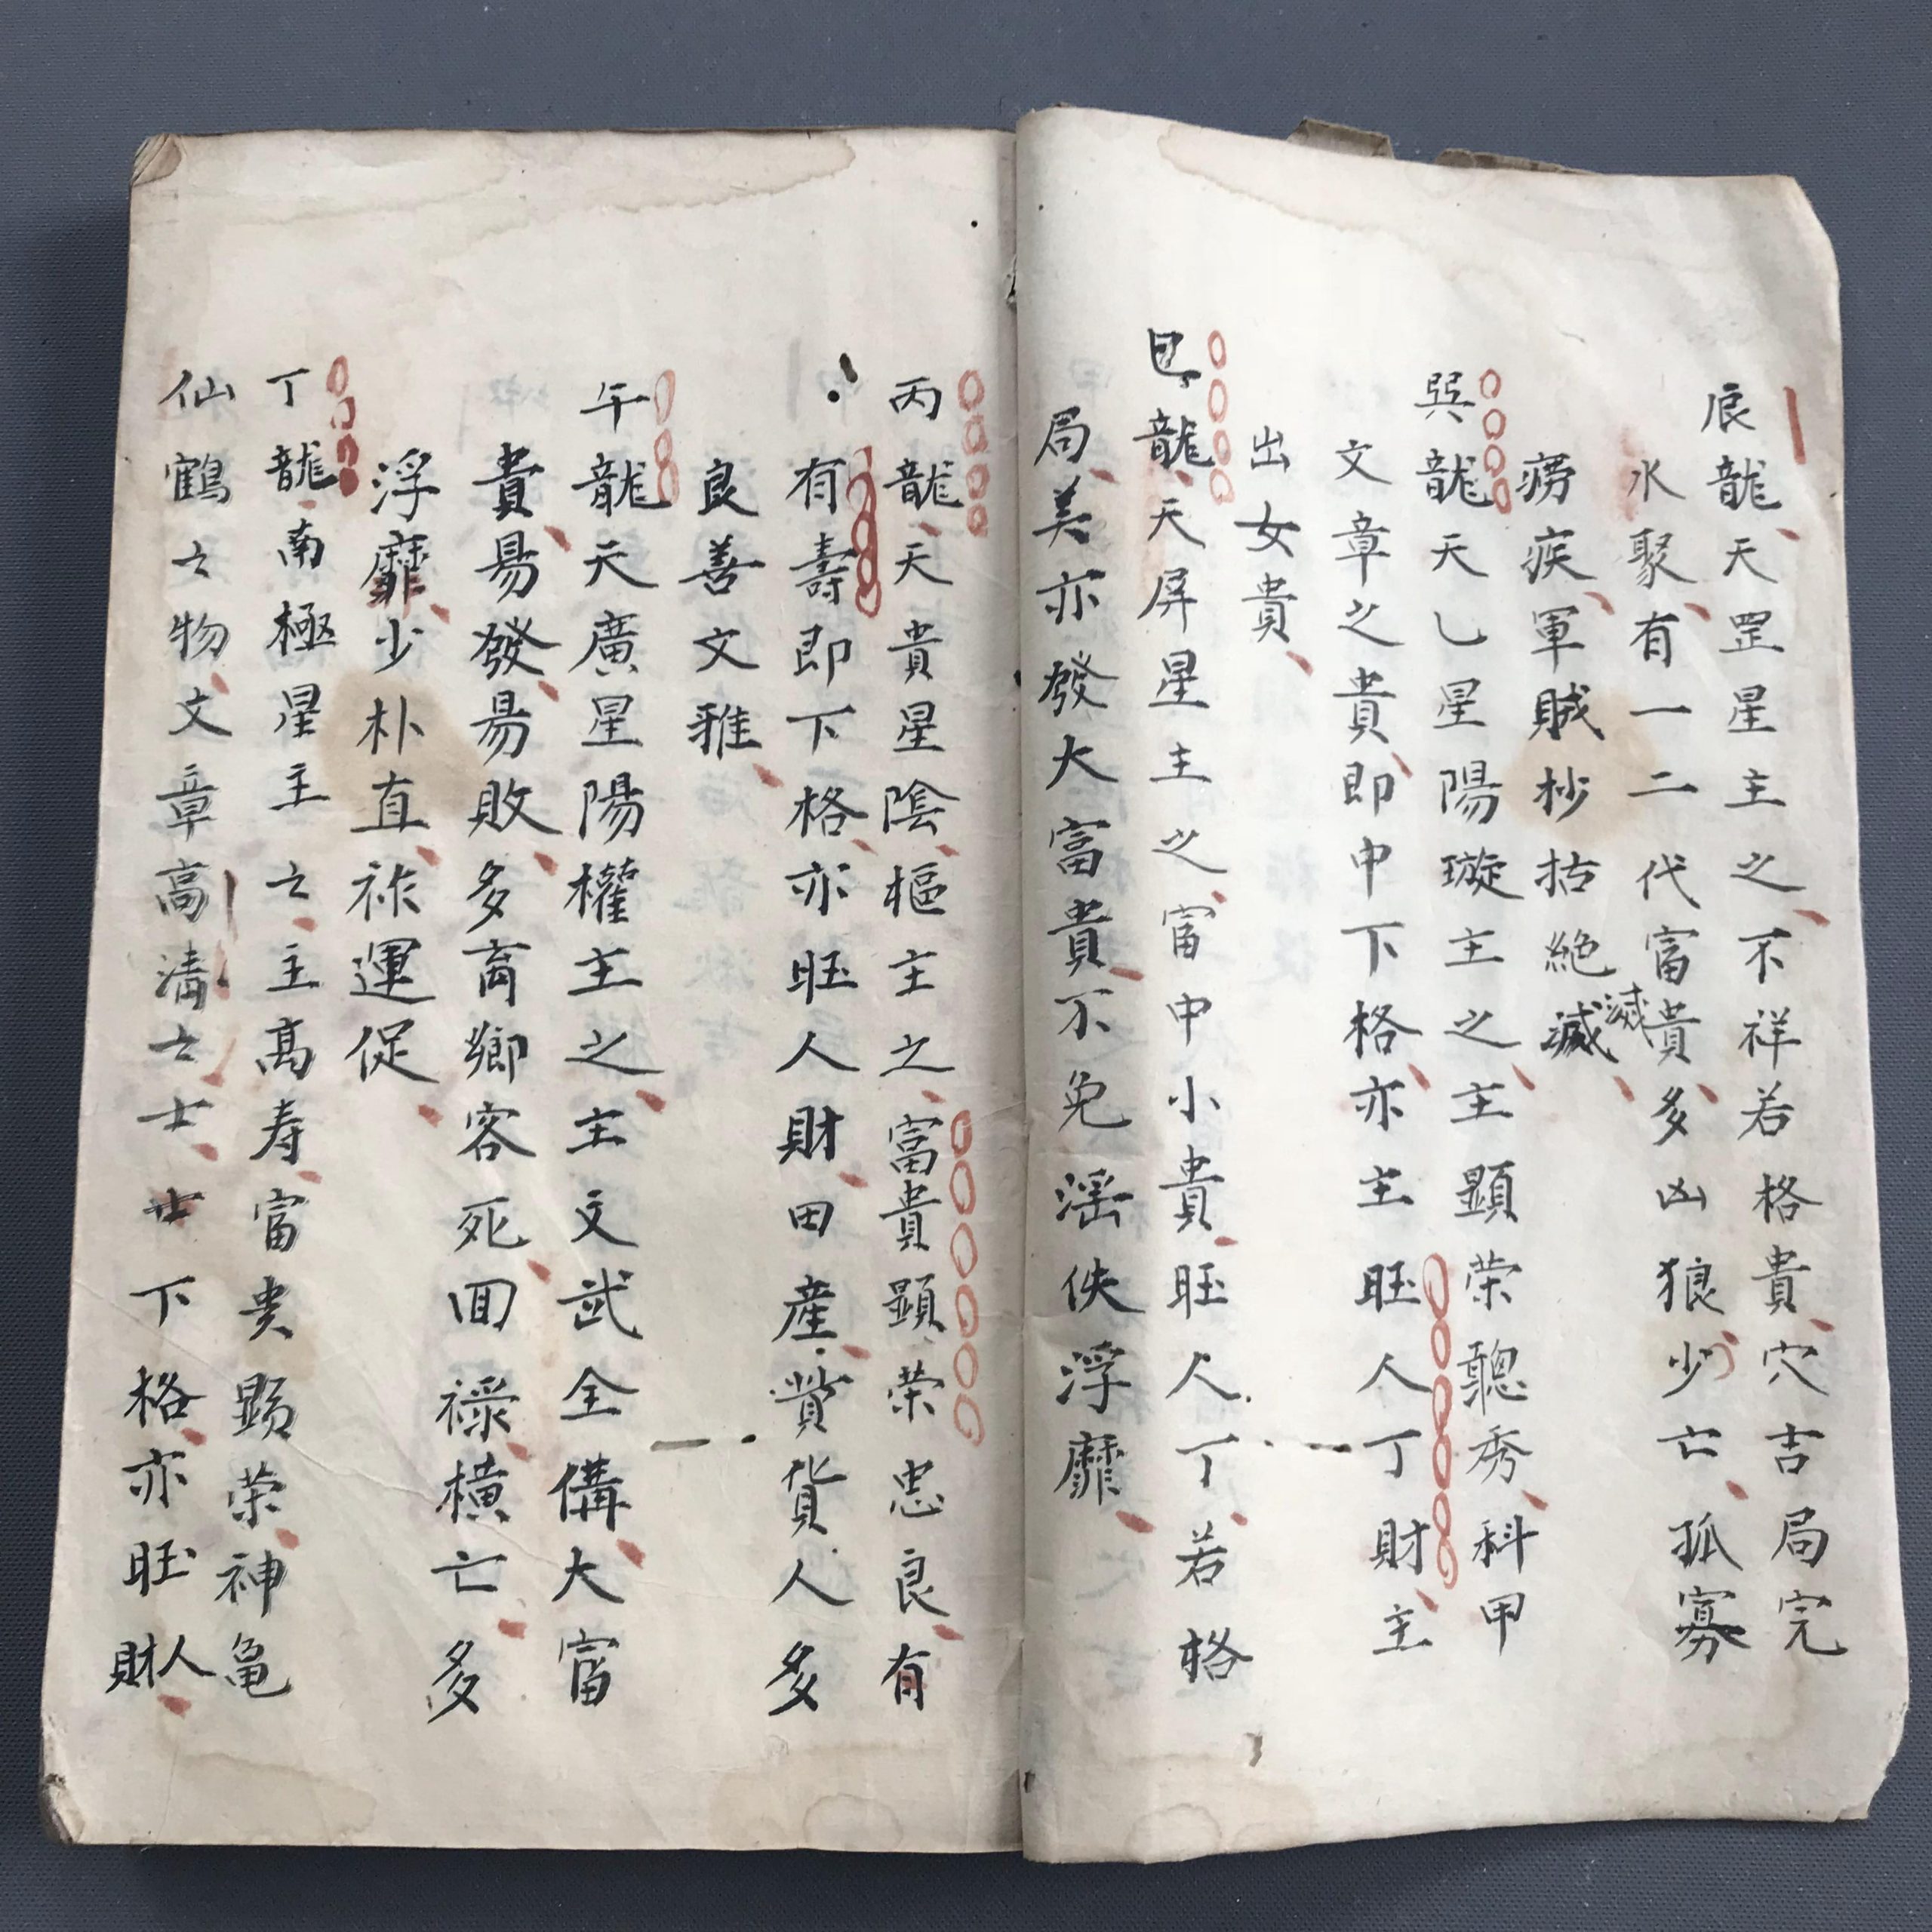 辰龍天罡星主之不祥若格貴穴吉局完
水聚有一二代富貴多凶狼少亡孤寡
痨疾軍賊抄括絶滅
滅
巽龍天乙星陽璇主之主顯荣聰秀科甲
文章之貴即中下格亦主旺人丁財主
出女貴
巳龍天屏星主之富中小貴旺人丁若格
局美亦發大富貴不免滛佚浮靡
丙龍天貴星陰樞主之富貴顯荣忠良有
有壽即下格亦旺人財田產賞貨人多
良善文雅
午龍天廣星陽權主之主文武全備大富
貴易發易敗多离鄉客死回祿橫亡多
浮靡少朴直祚運促
丁龍南極星主之主高寿富贵顕荣神亀
仙鶴之物文章高清之士下格亦旺人財